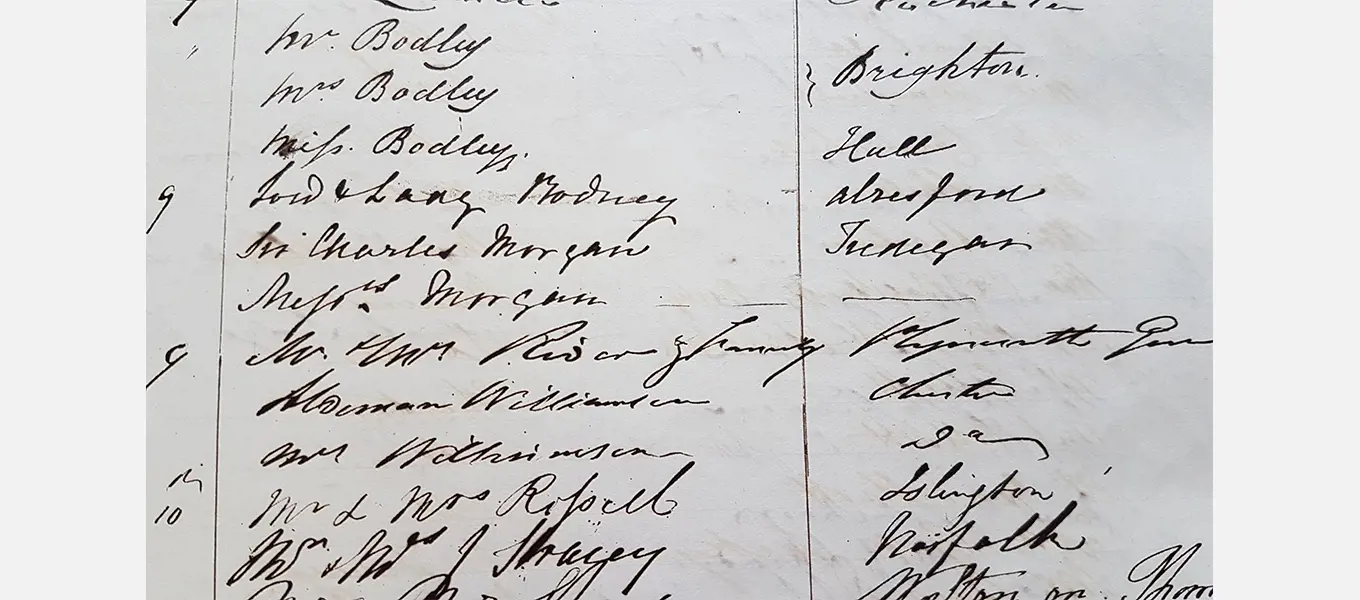 Mr. Bodley
Mrs Bodley } Brighton.
Miss. Bodley. Hull
9 Lord & Lady Rodney Alresford
Sir Charles Morgan Tredegar
Messrs Morgan
9 Mr & Mrs & Family Plymouth
Alderman Williamson Chester
Mrs Williamson Do
10 Mr & Mrs Russell Islington
Mr & Mrs J Stracey Norfolk
Walton on